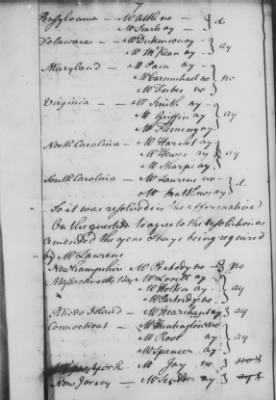 Pensylvania - Mr Atlee no } d
Mr Searle ay
Delaware - Mr Dickinson ay } ay
Mr McKean ay
Maryland - Mr Paca ay
Mr Carmichael no } no
Mr Forbes no
Virginia - Mr Smith ay
Mr Griffin ay } ay
Mr Fleming ay
North Carolina - Mr Harnet ay
Mr Hewes ay } ay
Mr Sharpe ay
South Carolina - Mr Laurens no } d.
Mr Mathews ay
So it was resolved in the affirmative
On the question to agree to the resolution as
amended the yeas & nays being required
by Mr Laurens
New Hampshire Mr Peabody no } no
Massachusetts Bay Mr Lovell ay
Mr Holten ay } ay
Mr Partridge no
Rhode Island - Mr Marchant ay } ay
Connecticut - Mr Huntington
Mr Root ay } ay
Mr Spencer ay
York - Mr Jay no
New Jersey - Mr Scudder ay